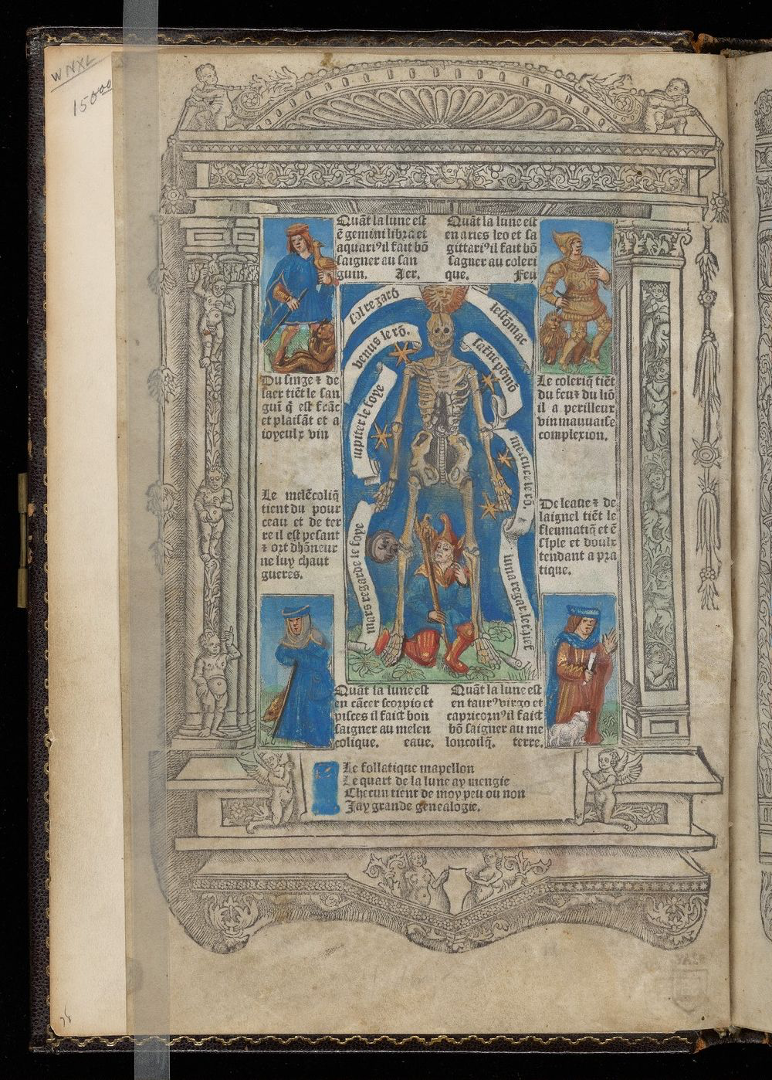 WNXL
15000
Quāt la lune est
ē gemini libra et
aquari⁹ il fait bō
saigner au san
guin. Aer.
Quāt la lune est
en aries leo et sa
gittari⁹ il fait bō
sagner au coleri
que. Feu
Sol regard
lestomac
venus le rō.
saturne pōmō
iupiter le foye
mercure le rō.
mars regarde le foye
luna regar. le chief
Du singe ⁊ de
laer tiēt le san
guī q̄ est frāc
et plaisāt et a
ioyeulx vin
Le coleriq̄ tiēt
du feu ⁊ du liō
il a perilleux
vin mauuaise
complexion.
Le melēcoliq̄
tient du pour
ceau et de ter
re il est pesant
⁊ ort dhōneur
ne luy chaut
gueres.
De leaue ⁊ de
laignel tiēt le
fleumatiq̄ et ē
siple et doulx
tendant a pra
tique.
Quāt la lune est
en cācer scorpio et
pisces il faict bon
saigner au melen
colique. eaue.
Quāt la lune est
en taur⁹ virgo et
capricorn⁹ il faict
bō saigner au me
loncoliq̄. terre.
Le follatique mapellon
Le quart de la lune ay mengie
Checun tient de moy peu ou non
Jay grande genealogie.